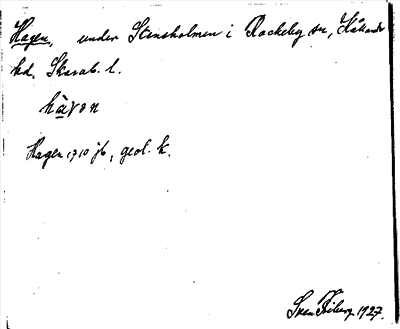 Hagen, under Stensholmen i Rackeby sn, Kållands
hd, Skarab. l.
hàɣən
Hagen 1710 jb, geol. k.
Sven Friberg 1927.